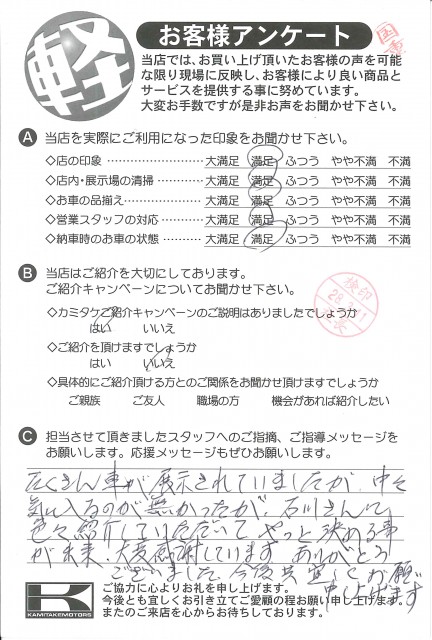 軽
お客様アンケート
当店では、お買い上げ頂いたお客様の声を可能
な限り現場に反映し、お客様により良い商品と
サービスを提供する事に努めています。
大変お手数ですが是非お声をお聞かせ下さい。
A 当店を実際にご利用になった印象をお聞かせ下さい。
◇店の印象 大満足 満足 ふつう やや不満 不満
◇店内・展示場の清掃 大満足 満足 ふつう やや不満 不満
◇お車の品揃え 大満足 満足 ふつう やや不満 不満
◇営業スタッフの対応 大満足 満足 ふつう やや不満 不満
◇納車時のお車の状態 大満足 満足 ふつう やや不満 不満
B 当店はご紹介を大切にしております。
ご紹介キャンペーンについてお聞かせ下さい。
検印
◇カミタケご紹介キャンペーンのご説明はありましたでしょうか
はい いいえ
◇ご紹介を頂けますでしょうか
はい いいえ
◇具体的にご紹介頂ける方とのご関係をお聞かせ頂けますでしょうか
ご親族 ご友人 職場の方 機会があれば紹介したい
C 担当させて頂きましたスタッフへのご指摘、ご指導メッセージを
お願いします。応援メッセージもぜひお願いします。
たくさん車が展示されていましたが、中々
気に入るのが無かったが、石川さんに
色々紹介していただいて、やっと決める事
が出来、大変感謝しています。ありがとう
ございました。今後共宜しくお願い
申し上げます
K
KAMITAKEMOTORS
ご協力に心よりお礼を申し上げます。
今後とも宜しくお引き立てご愛顧の程お願い申し上げます。
またのご来店を心からお待ちしております。